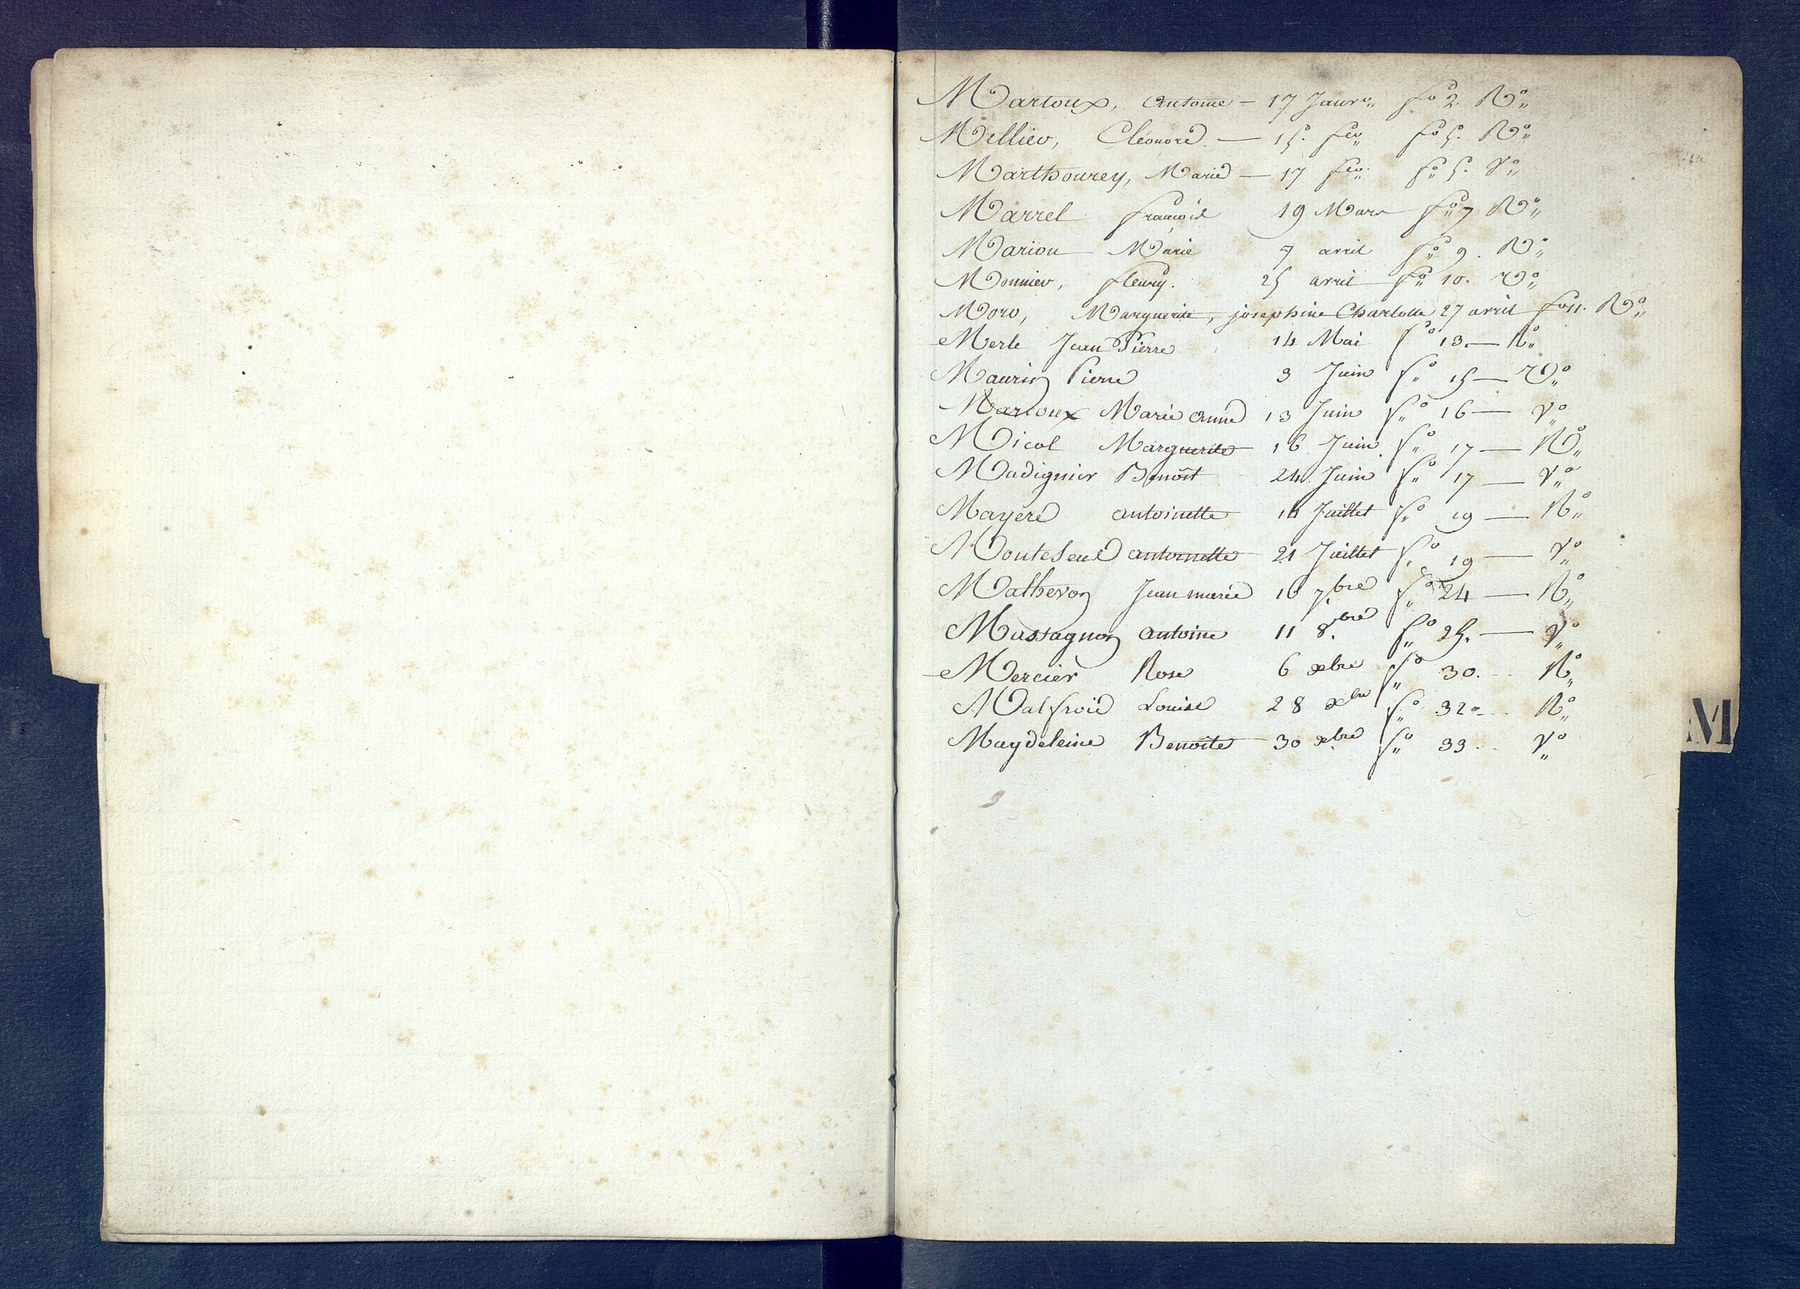 Martoux, Antoine — 17 Janv.r fo 2. Ro
Mellier, Cléonore. — 15. fev fo 5. Ro
Marthourey, Marie — 17 fev. fo 5. Vo
Marrel françois 19 Mars fo 7 Ro
Marion Marie 7 avril fo 9. Ro
Monnier, fleury. 25 avril fo 10. Vo
Moro, Marguerite, josephine Charlotte 27 avril fo 11. Ro
Merle Jean Pierre 14 Mai fo 13. — Ro
Maurin Pierre 3 Juin fo 15 — Vo
Martoux Marie anne 13 Juin fo 16 — Vo
Micol Marguerite 16 Juin fo 17 — Ro
Madignier Benoit 24 Juin fo 17 — Vo
Mayere antoinette 14 Juillet fo 19 — Ro
Monteseud antoinette 21 Juillet fo 19 — Vo
Matheron Jean marie 10 7bre fo 24 — Ro
Massagnon antoine 11 8bre fo 25. — Vo
Mercier Rose 6 xbre fo 30. Ro
Malfroid Louise 28 xbre fo 32 Ro
Magdeleine Benoite 30 xbre fo 33 Vo
M